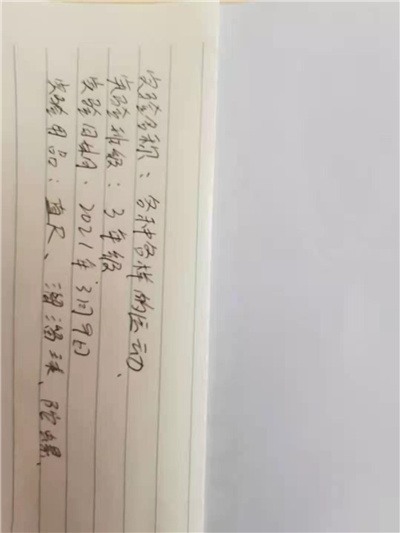 实验名称：各种各样的运动、
实验班级：3年级
实验日期：2021年3月9日
实验用品：直尺、溜溜球、陀螺、